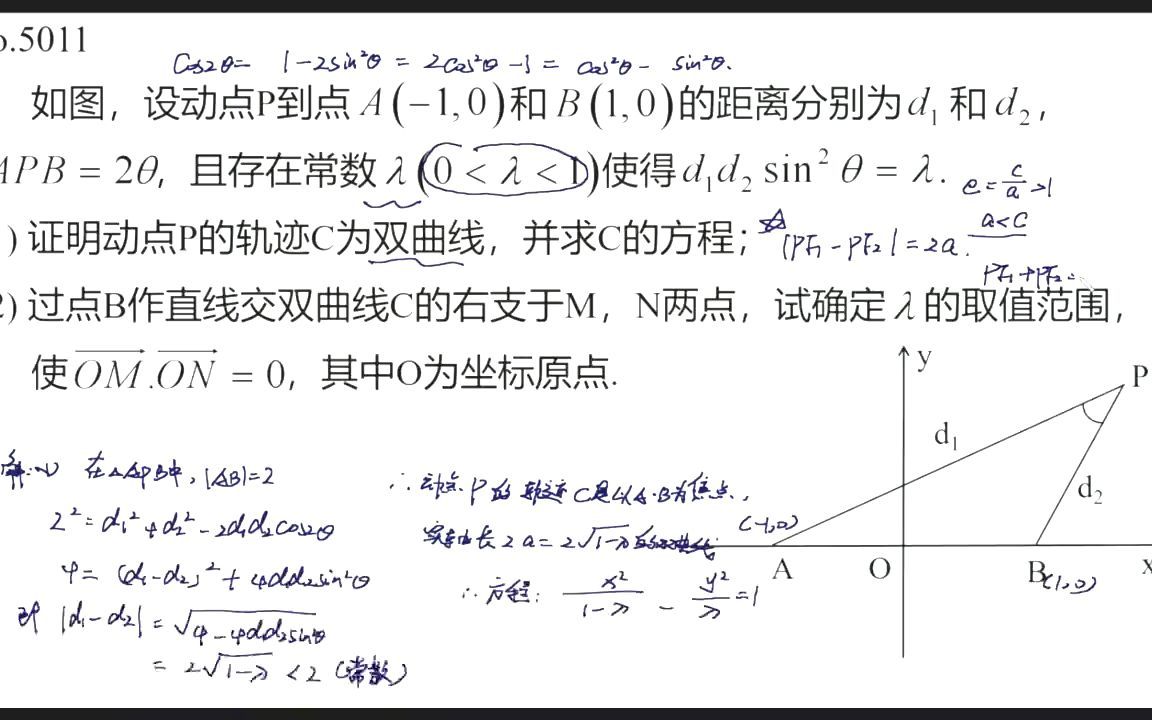 o.5011
Cos2θ = 1-2sin²θ = 2cos²θ-1 = cos²θ - sin²θ.
如图，设动点P到点 A(-1,0)和 B(1,0)的距离分别为d₁ 和 d₂，
APB = 2θ, 且存在常数 λ(0 < λ < 1)使得 d₁d₂ sin² θ = λ.
e = c/a >1
)证明动点P的轨迹C为双曲线，并求C的方程；
|PF₁ - PF₂| = 2a.
a<c
PF₁+PF₂=
2) 过点B作直线交双曲线C的右支于M，N两点，试确定 λ 的取值范围，
使 OM.ON = 0，其中O为坐标原点.
y
P
d₁
d₂
(-1,0)
A
O
B
(1,0)
x
解: (1) 在△APB中, |AB|=2
2² = d₁² + d₂² - 2d₁d₂cos2θ
4 = (d₁-d₂)² + 4d₁d₂sin²θ
即 |d₁-d₂| = √4-4d₁d₂sin²θ
= 2√1-λ < 2 (常数)
∴ 动点P的轨迹C是以A·B为焦点,
实轴长 2a = 2√1-λ 的双曲线
∴ 方程: x²/1-λ - y²/λ = 1